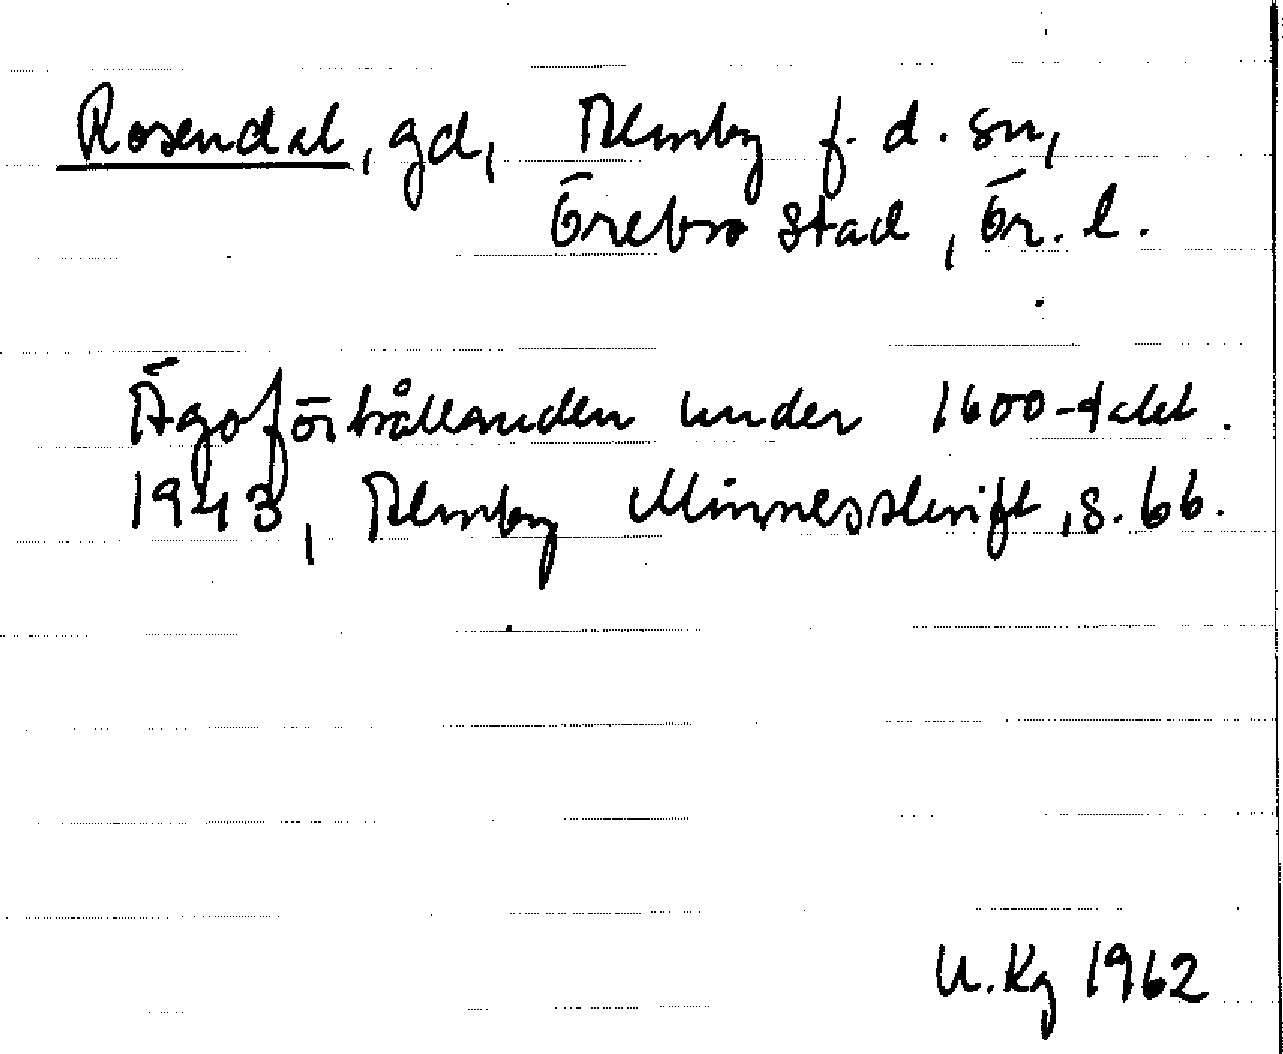 Rosendal, gd, Almby f. d. sn,
Örebro stad, Ör. l.
Ägoförhållanden under 1600-talet.
1943, Almby Minnesskrift, s. 66.
U. Kg 1962